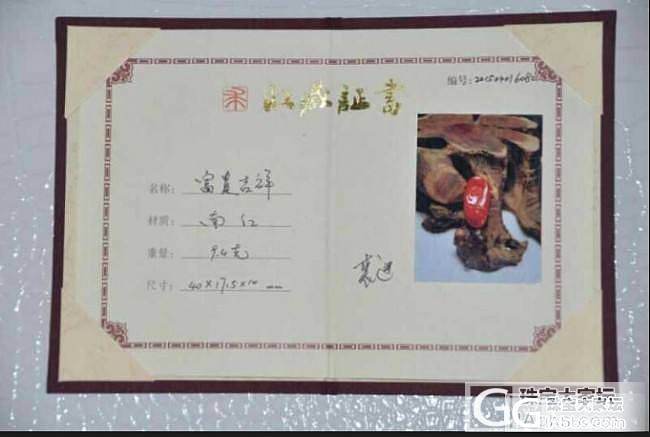 收藏证書
编号: 20150401608
名称: 富贵吉祥
材质: 南红
重量: 9.4克
尺寸: 40×17.5×10 mm
珠宝大家坛